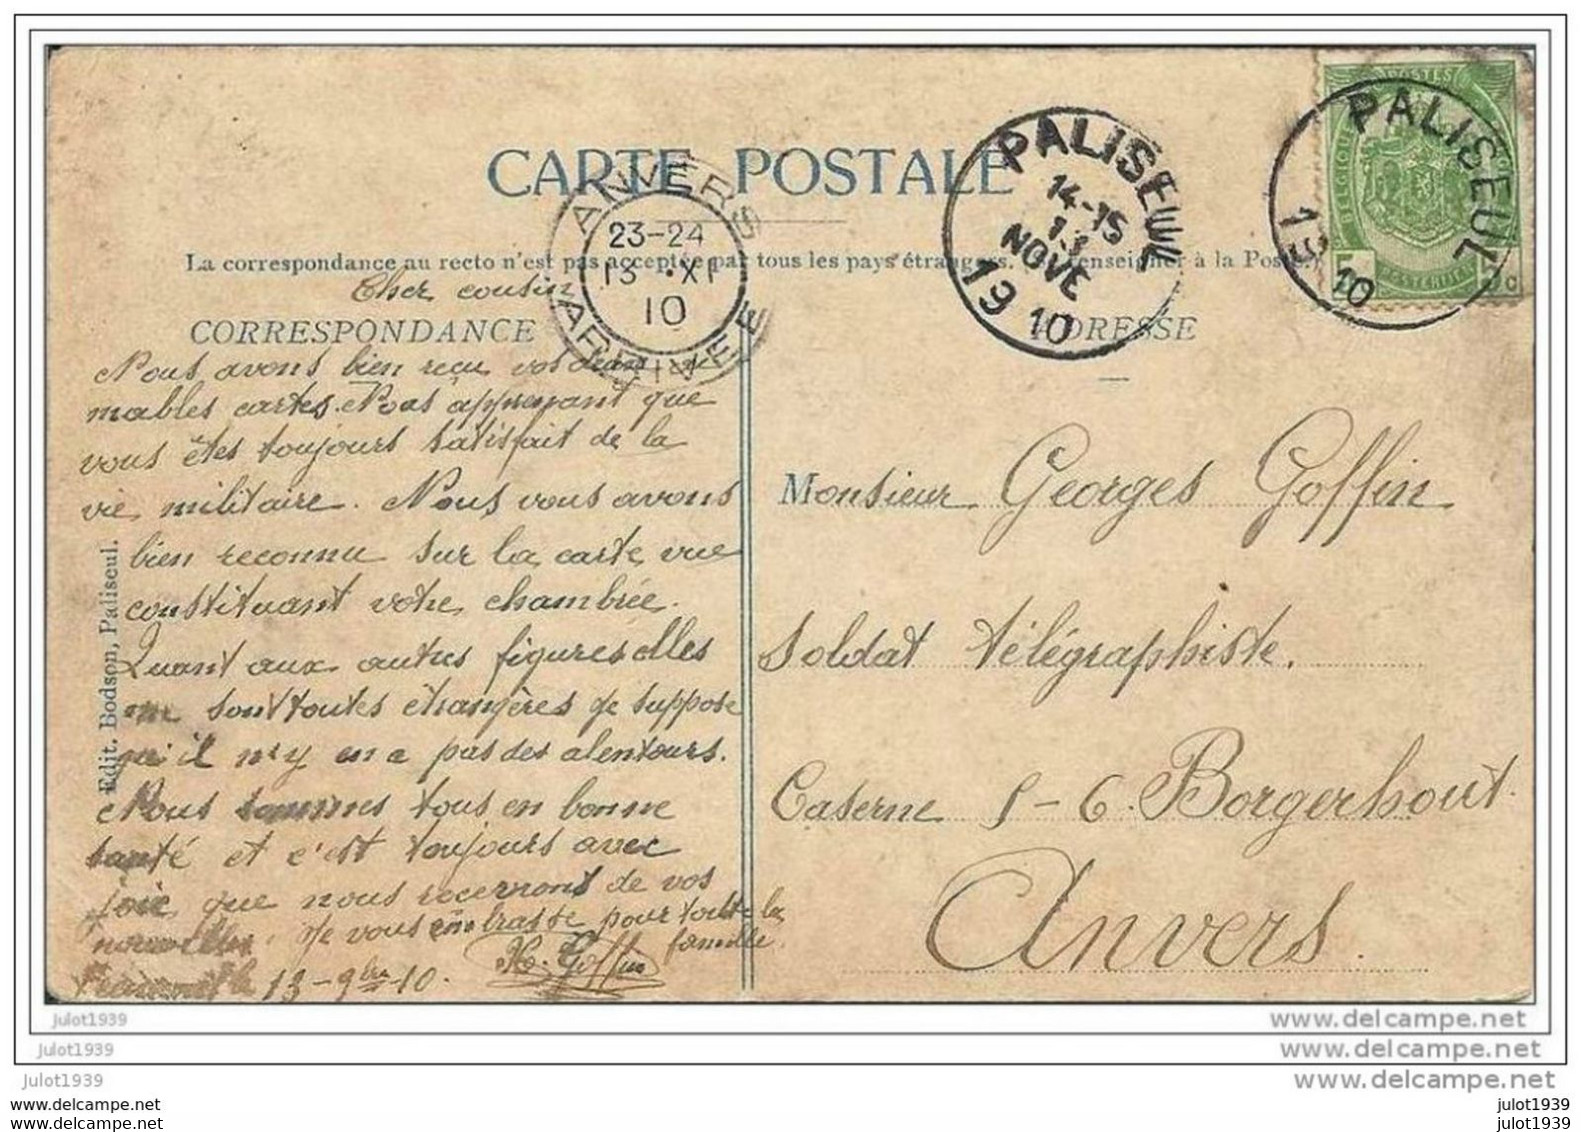 CARTE POSTALE
La correspondance au recto n'est pas acceptée par tous les pays étrangers. enseigner à la Poste.)
CORRESPONDANCE
ADRESSE
ANVERS
23-24
13 XI
10
ARRIVEE
PALISEUL
14-15
13
NOVE
1910
PALISEUL
1910
POSTES
Cher cousin
Nous avons bien reçu vos deux ai-
mables cartes. Nous apprenant que
vous êtes toujours satisfait de la
vie militaire. Nous vous avons
bien reconnu sur la carte vue
constituant votre chambrée.
Quant aux autres figures elles
me sont toutes étrangères je suppose
qu'il n'y en a pas des alentours.
Nous sommes tous en bonne
santé et c'est toujours avec
joie que nous recevrons de vos
nouvelles. Je vous embrasse pour toute la
famille.
le 13-9bre-10. H. Goffin
Edit. Bodson, Paliseul.
Monsieur Georges Goffin
Soldat télégraphiste.
Caserne 5-6. Borgerhout.
Anvers.
julot1939
www.delcampe.net
julot1939
www.delcampe.net
julot1939
www.delcampe.net
www.delcampe.net
julot1939
www.delcampe.net
julot1939